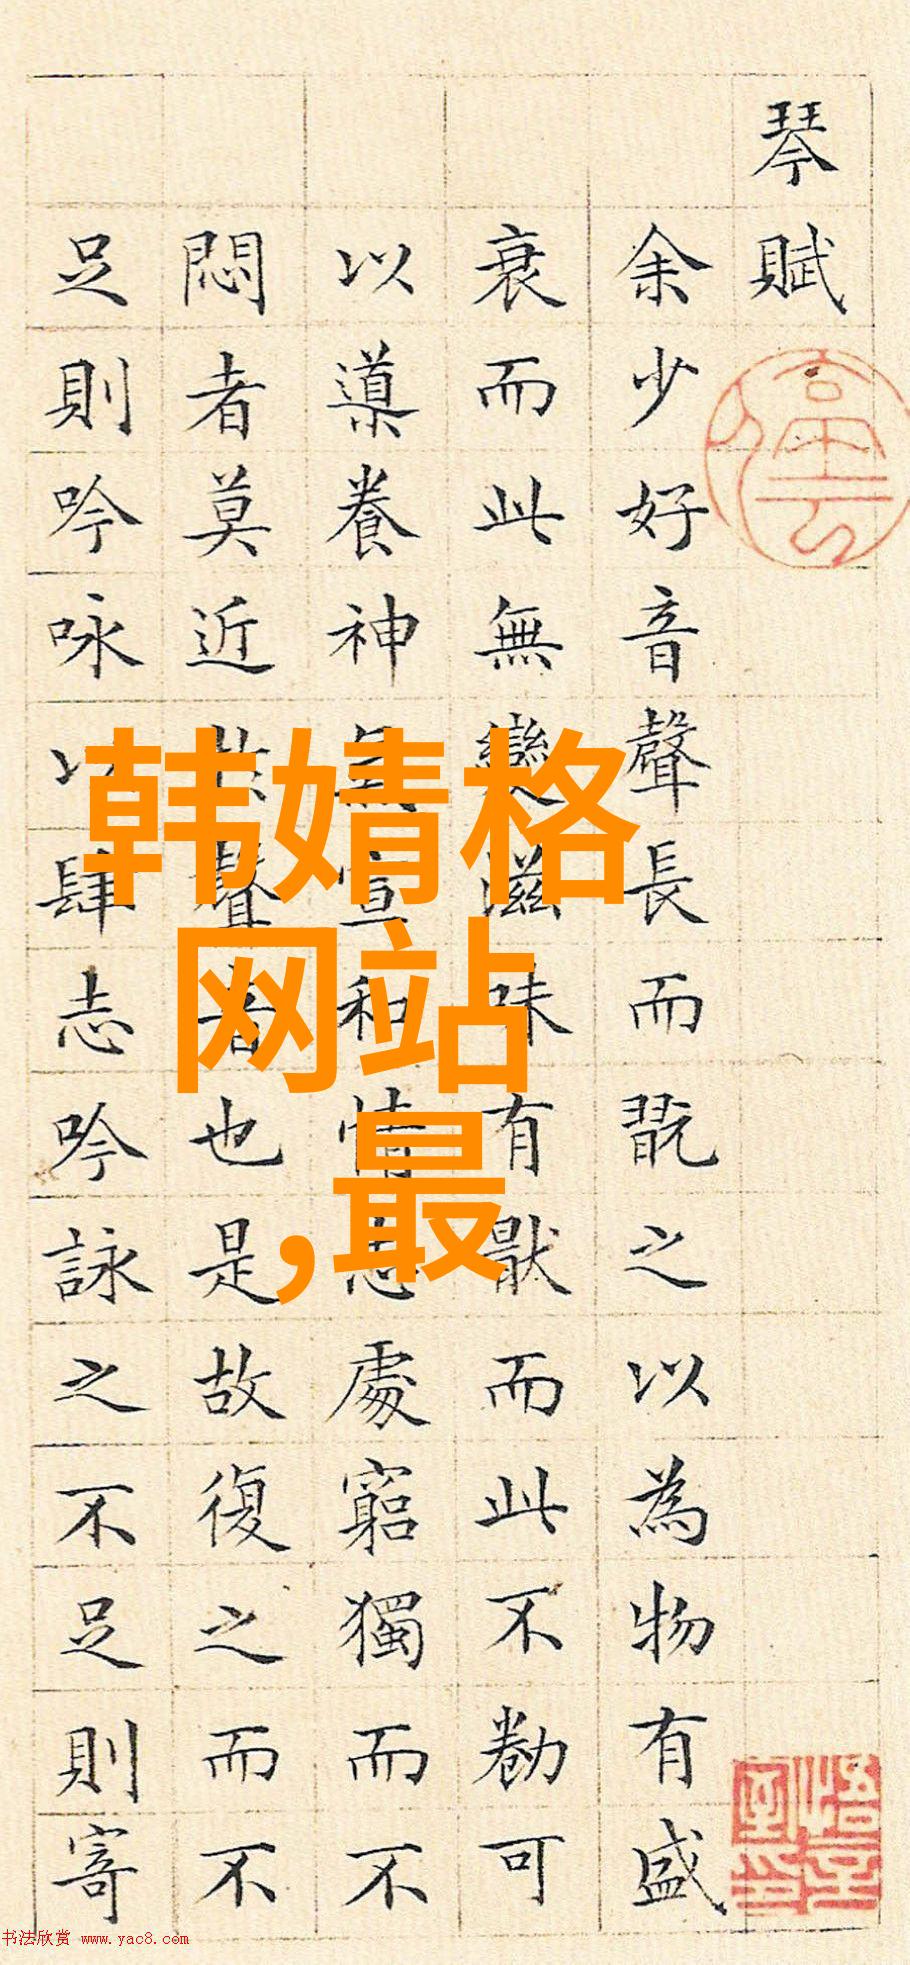 琴賦
余少好音聲長而翫之以為物有盛
衰而此無變滋味有猒而此不勌可
以導養神氣宣和情志處窮獨而不
悶者莫近聲也是故復之而不
足則吟咏以肆志吟詠之不足則寄
韩婧格
网站
,最
书法欣赏 www.yac8.com